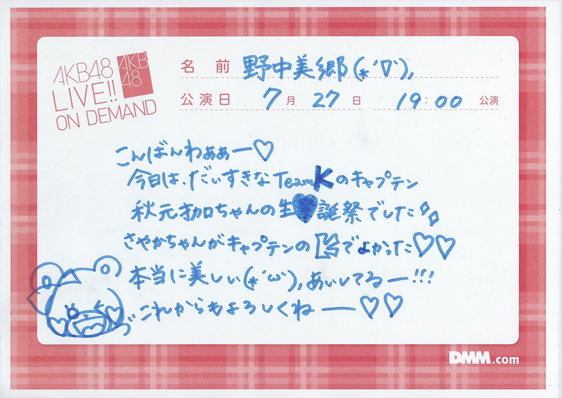 AKB48
LIVE!!
ON DEMAND
AKB
48
名前 野中美郷(*´∇`),
公演日 7月27日 19:00 公演
こんばんわぁぁー♡
今日は、だいすきなTeamKのキャプテン
秋元才加ちゃんの生誕祭でした
さやかちゃんがキャプテンの でよかった♡♡
本当に美しい(*´ω`),あいしてるー!!!
これからもよろしくねー♡♡
DMM.com